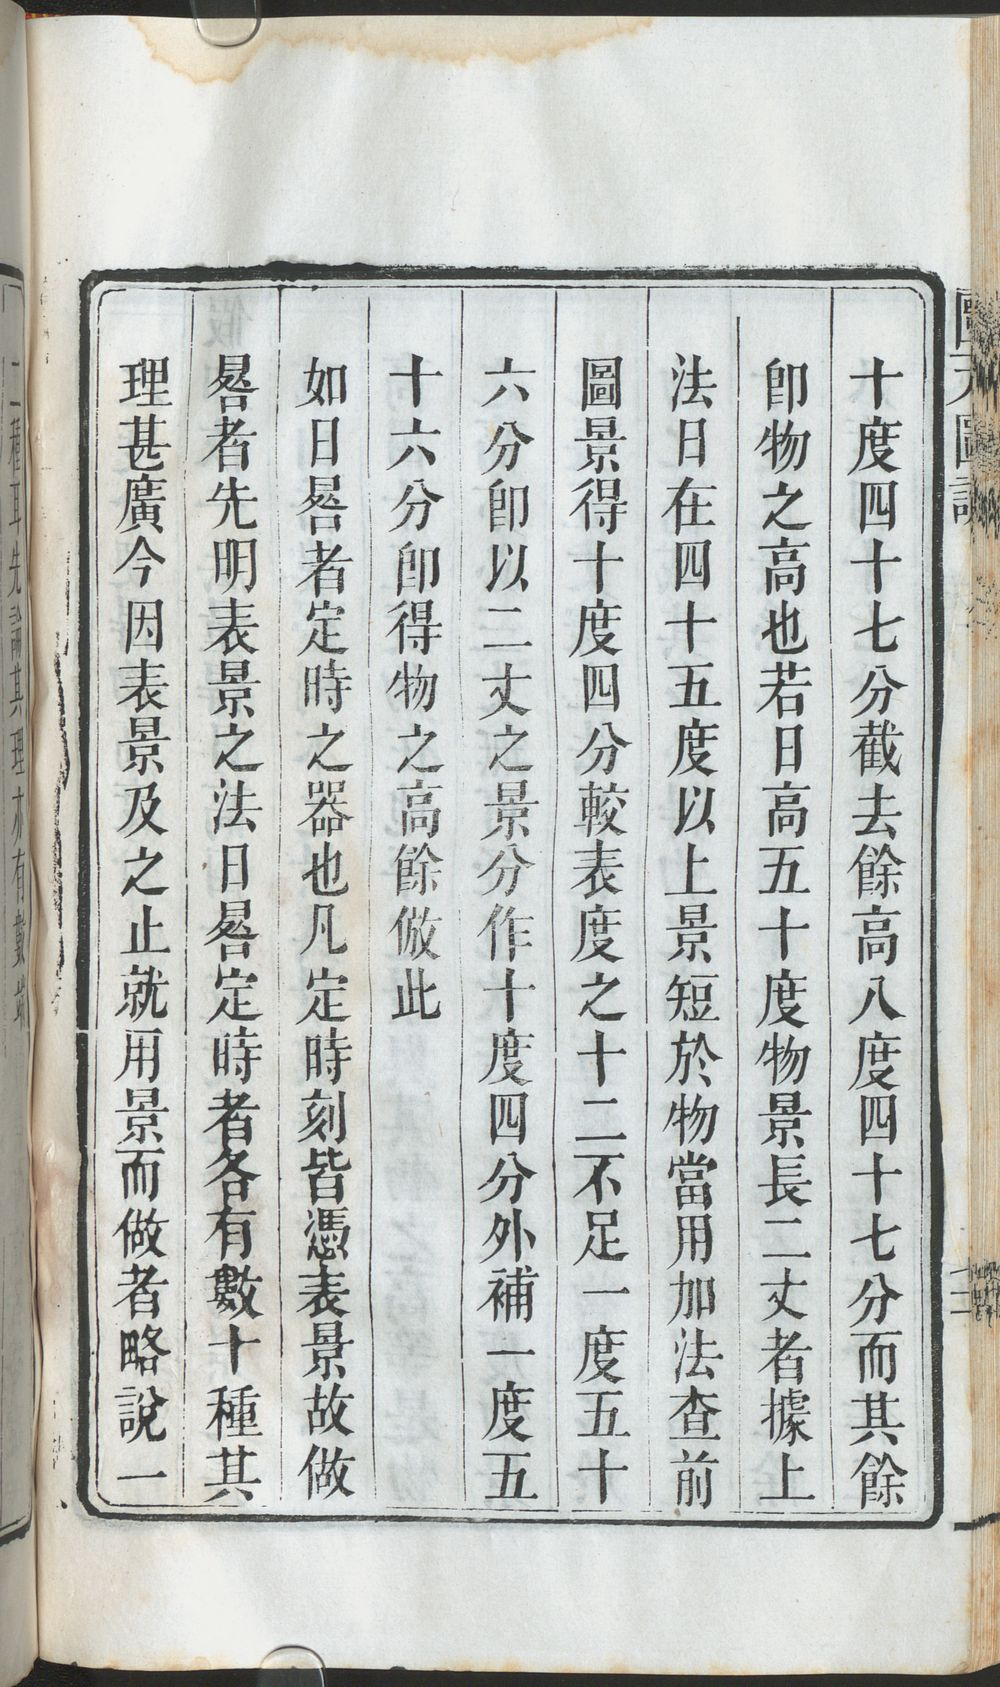 十度四十七分截去餘高八度四十七分而其餘
卽物之高也若日高五十度物景長二丈者據上
法日在四十五度以上景短於物當用加法查前
圖景得十度四分較表度之十二不足一度五十
六分卽以二丈之景分作十度四分外補一度五
十六分卽得物之高餘倣此
如日晷者定時之器也凡定時刻皆憑表景故做
晷者先明表景之法日晷定時者各有數十種其
理甚廣今因表景及之止就用景而做者略說一
二種耳先論其理亦有數端